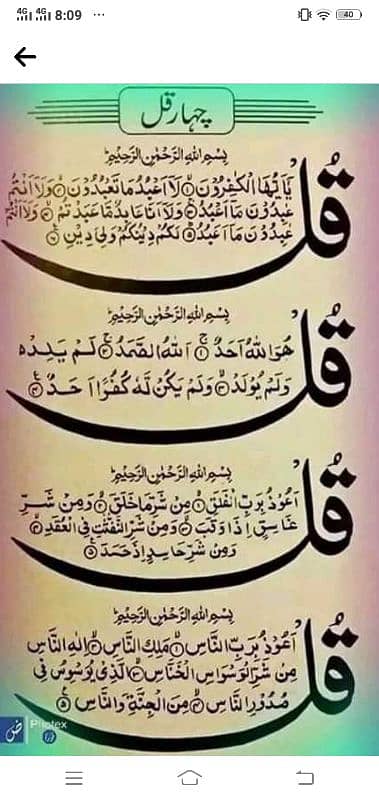 8:09
40
چہار قل
بِسْمِ اللهِ الرَّحْمٰنِ الرَّحِيْمِ
قُلْ
يٰۤاَيُّهَا الْكٰفِرُوْنَ ۙ لَاۤ اَعْبُدُ مَا تَعْبُدُوْنَ ۙ وَلَاۤ اَنْتُمْ
عٰبِدُوْنَ مَاۤ اَعْبُدُ ۚ وَلَاۤ اَنَا عَابِدٌ مَّا عَبَدْتُّمْ ۙ وَلَاۤ اَنْتُمْ
عٰبِدُوْنَ مَاۤ اَعْبُدُ ؕ لَكُمْ دِيْنُكُمْ وَلِيَ دِيْنِ
بِسْمِ اللهِ الرَّحْمٰنِ الرَّحِيْمِ
قُلْ
هُوَ اللهُ اَحَدٌ ۚ اَللهُ الصَّمَدُ ۚ لَمْ يَلِدْ ۙ
وَلَمْ يُوْلَدْ ۙ وَلَمْ يَكُنْ لَّهٗ كُفُوًا اَحَدٌ
بِسْمِ اللهِ الرَّحْمٰنِ الرَّحِيْمِ
قُلْ
اَعُوْذُ بِرَبِّ الْفَلَقِ ۙ مِنْ شَرِّ مَا خَلَقَ ۙ وَمِنْ شَرِّ
غَاسِقٍ اِذَا وَقَبَ ۙ وَمِنْ شَرِّ النَّفّٰثٰتِ فِي الْعُقَدِ ۙ
وَمِنْ شَرِّ حَاسِدٍ اِذَا حَسَدَ
بِسْمِ اللهِ الرَّحْمٰنِ الرَّحِيْمِ
قُلْ
اَعُوْذُ بِرَبِّ النَّاسِ ۙ مَلِكِ النَّاسِ ۙ اِلٰهِ النَّاسِ
مِنْ شَرِّ الْوَسْوَاسِ الْخَنَّاسِ ۙ الَّذِيْ يُوَسْوِسُ فِيْ
صُدُوْرِ النَّاسِ ۙ مِنَ الْجِنَّةِ وَالنَّاسِ